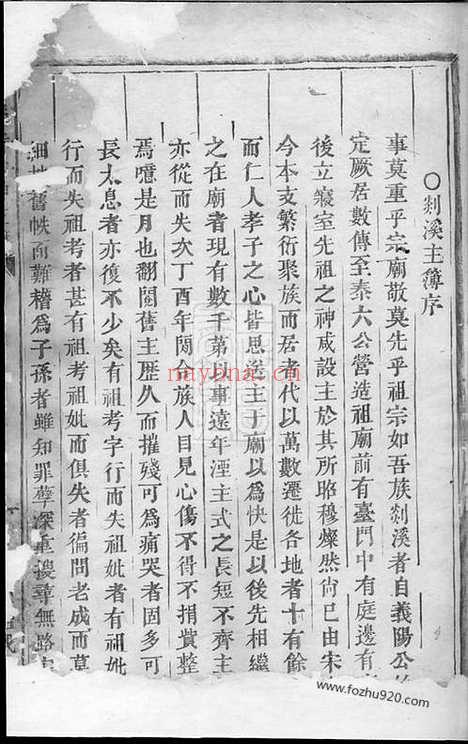 〇剡溪主簿序
事莫重乎宗廟敬莫先乎祖宗如吾族剡溪者自義陽公
定厥居數傳至泰六公營造祖廟前有臺門中有庭邊有
後立寢室先祖之神咸設主於其所昭穆燦然尙已由宋
今本支繁衍聚族而居者代以萬數遷徙各地者十有餘
而仁人孝子之心皆思送主于廟以爲快是以後先相繼
之在廟者現有數千第以事遠年湮主式之長短不齊主
亦從而失次丁酉年閤合族人目見心傷不得不捐貲整
焉噫是月也翻閱舊主歷久而摧殘可爲痛哭者固多可
長太息者亦復不少矣有祖考字行而失祖妣者有祖妣
行而失祖考者甚有祖考祖妣而俱失者徧問老成而莫
細 舊帙而難稽爲子孫者雖知罪孽深重搜尋無路
nayona.cn
www.fozhu920.com